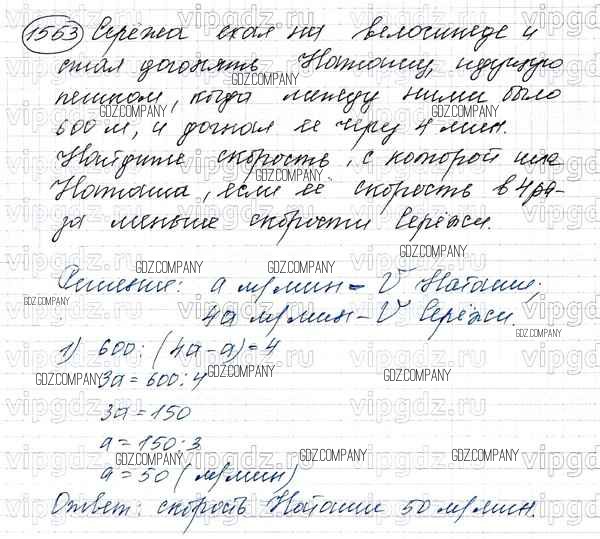 1563 Серёжа ехал на велосипеде и
стал догонять Наташу, идущую
пешком, когда между ними было
600 м, и догнал её через 4 мин.
Найдите скорость, с которой шла
Наташа, если её скорость в 4 ра-
за меньше скорости Серёжи.
Решение: a м/мин – V Наташи;
4a м/мин – V Серёжи.
1) 600 : (4a – a) = 4
3a = 600 : 4
3a = 150
a = 150 : 3
a = 50 (м/мин)
Ответ: скорость Наташи 50 м/мин.
GDZ.COMPANY
vipgdz.ru